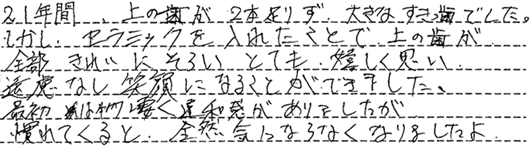 21年間、上の歯が2本足りず、大きなすきっ歯でした。
しかし、セラミックを入れたことで上の歯が
全部きれいにそろいとても嬉しく思い
遠慮なし笑顔になることができました。
最初は物凄く違和感がありましたが
慣れてくると、全然気にならなくなりましたよ。